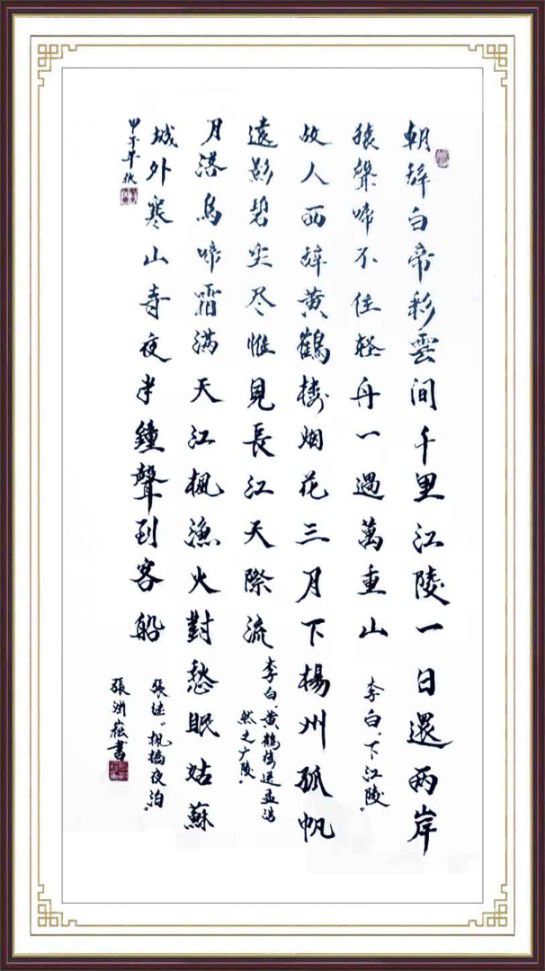 朝辞白帝彩雲间千里江陵一日還两岸
猿聲啼不住轻舟一過萬重山
李白“下江陵”
故人西辞黄鶴楼烟花三月下楊州孤帆
遠影碧空尽惟見長江天際流
李白“黄鹤楼送孟浩
然之广陵”
月落烏啼霜滿天江楓漁火對愁眠姑蘇
城外寒山寺夜半鐘聲到客船
張继“楓橋夜泊”
甲子年秋
張洲崧書